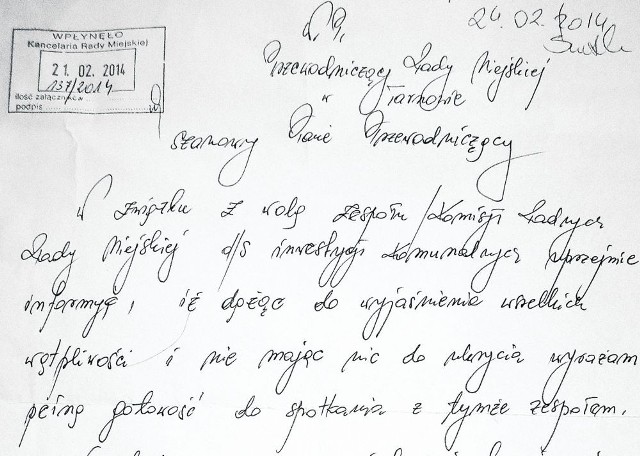 WPŁYNĘŁO
Kancelaria Rady Miejskiej
21. 02. 2014
137/2014
ilość załączników
podpis
24.02.2014
Przewodniczący Rady Miejskiej
w Tarnowie
Szanowny Panie Przewodniczący
W związku z wolą zespołu / Komisji Radnych
Rady Miejskiej d/s inwestycji komunalnych uprzejmie
informuję, iż dążąc do wyjaśnienia wszelkich
wątpliwości i nie mając nic do ukrycia wyrażam
pełną gotowość do spotkania z tymże zespołem.